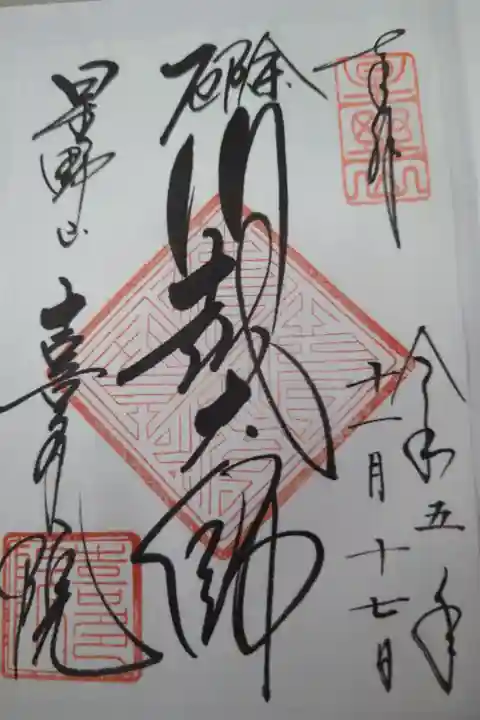 奉拝
令和五年
十一月十七日
厄除
川越大師
星野山
喜多院